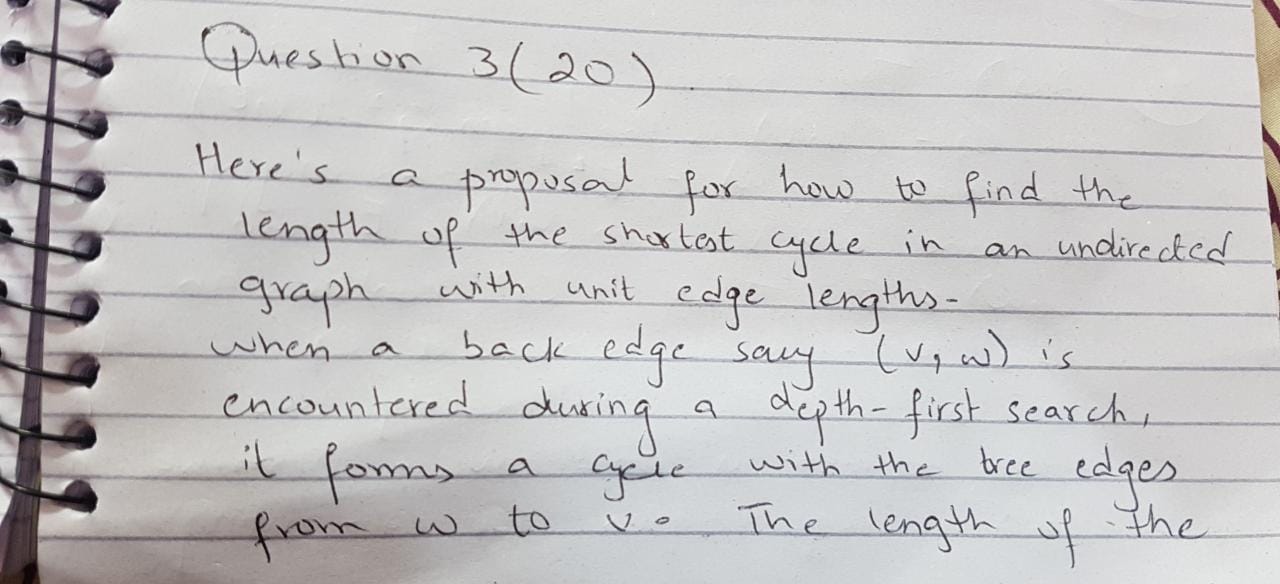 Question 3(20).
Here's a proposal for how to find the
length of the shortest cycle in an undirected
graph with unit edge lengths-
when a back edge say (v, w) is
encountered during a depth-first search,
it forms a cycle with the tree edges
from w to v. The length of the